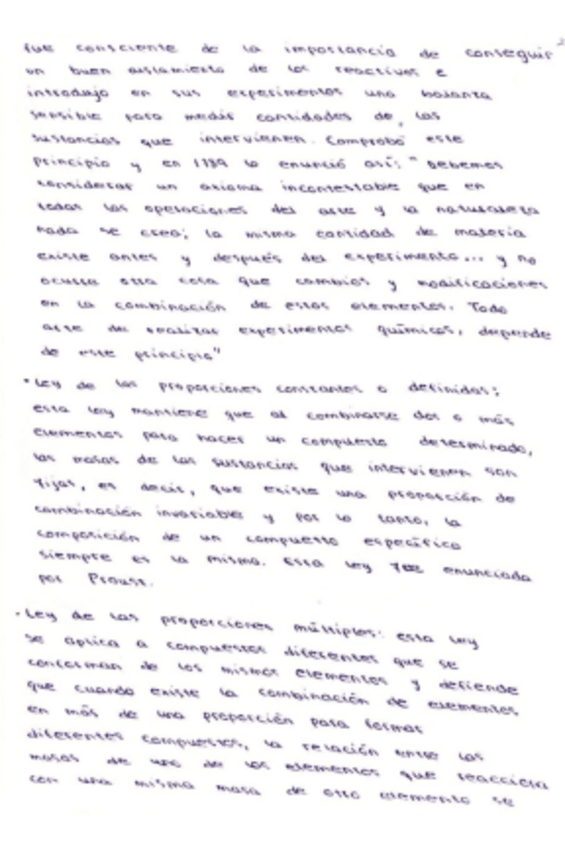 fue consciente de la importancia de conseguir
un buen aislamiento de los reactivos e
introdujo en sus experimentos una balanza
sensible para medir cantidades de las
sustancias que intervienen. Comprobó este
principio y en 1789 lo enunció así: " Debemos
considerar un axioma incontestable que en
todas las operaciones del arte y la naturaleza
nada se crea; la misma cantidad de materia
existe antes y después del experimento... y no
ocurra otra cosa que cambios y modificaciones
en la combinación de estos elementos. Todo
arte de realizar experimentos químicos, depende
de este principio"
• Ley de las proporciones constantes o definidas:
esta ley mantiene que al combinarse dos o más
elementos para hacer un compuesto determinado,
las masas de las sustancias que intervienen son
fijas, es decir, que existe una proporción de
combinación invariable y por lo tanto, la
composición de un compuesto específico
siempre es la misma. Esta ley fue enunciada
por Proust.
• Ley de las proporciones múltiples: esta ley
se aplica a compuestos diferentes que se
conforman de los mismos elementos y defiende
que cuando existe la combinación de elementos
en más de una proporción para formar
diferentes compuestos, la relación entre las
masas de uno de los elementos que reacciona
con una misma masa de otro elemento se